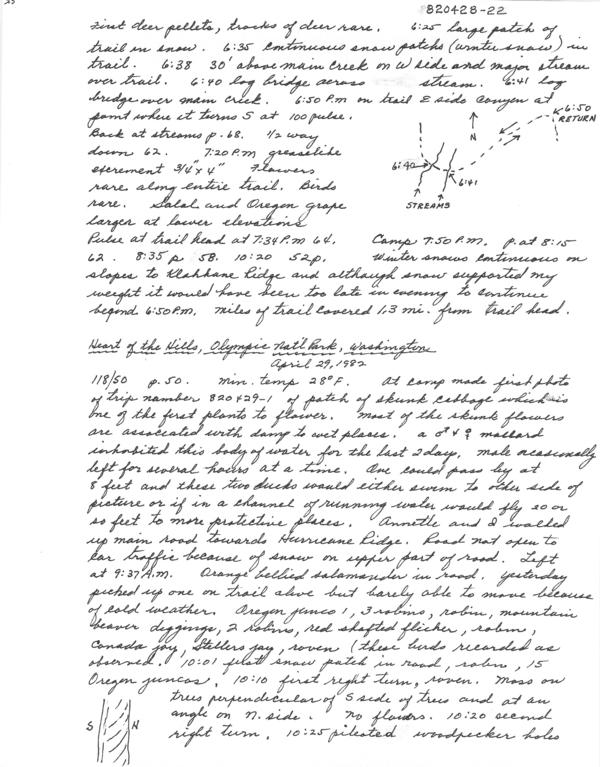 820428-22
First deer pellets, tracks of deer rare. 6:25 large patch of
trail in snow. 6:35 continuous snow patchs (winter snow) in
trail. 6:38 30' above main creek on W side and major stream
over trail. 6:40 log bridge across stream. 6:41 log
bridge over main creek. 6:50 P.M on trail E side canyon at
point where it turns S at 100 pulse.
Back at streams p. 68. 1/2 way
down 62. 7:20 P.M greaselike
excrement 3/4" x 4" Flowers
rare along entire trail. Birds
rare. Salal and Oregon grape
larger at lower elevations
N
6:50
RETURN
6:40
6:41
STREAMS
Pulse at trail head at 7:34 P.M 64. Camp 7:50 P.M. p. at 8:15
62. 8:35 p 58. 10:20 52 p. Winter snows continuous on
slopes to Klahhane Ridge and although snow supported my
weight it would have been too late in evening to continue
beyond 6:50 P.M. miles of trail covered 1.3 mi. from trail head.
Heart of the Hills, Olympic Nat'l Park, Washington
April 29, 1982
118/50 p. 50. min. temp 28°F. At camp made first photo
of trip number 820429-1 of patch of skunk cabbage which is
one of the first plants to flower. Most of the skunk flowers
are associated with damp to wet places. a ♂ & ♀ mallard
inhabited this body of water for the last 2 day, male occasionally
left for several hours at a time. One could pass by at
8 feet and these two ducks would either swim to other side of
picture or if in a channel of running water would fly 20 or
so feet to more protective places. Annette and I walked
up main road towards Hurricane Ridge. Road not open to
car traffic because of snow on upper part of road. Left
at 9:37 A.M. Orange bellied salamander in road. Yesterday
picked up one on trail alive but barely able to move because
of cold weather. Oregon junco 1, 3 robins, robin, mountain
beaver diggings, 2 robins, red shafted flicker, robin,
Canada jay, Stellers jay, roven (these birds recorded as
observed. 10:01 first snow patch in road, robin, 15
Oregon juncos, 10:10 first right turn, roven. Moss on
trees perpendicular of S side of trees and at an
angle on N. side. No flowers. 10:20 second
right turn, 10:25 pileated woodpecker holes
S
N